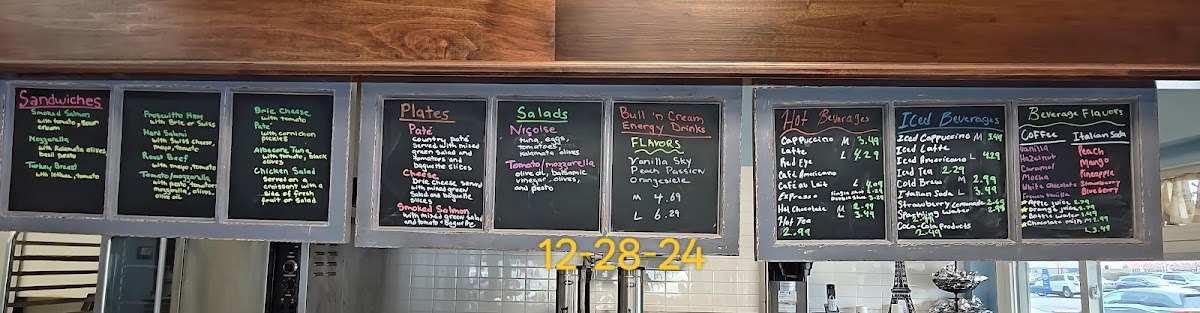 Sandwiches
Smoked Salmon
with tomato, sour
cream
Mozzarella
with kalamata olives,
basil pesto
Turkey Breast
with lettuce, tomato
Prosciutto Ham
with Brie or Swiss
Hard Salami
with Swiss cheese,
mayo, tomato
Roast Beef
with mayo, tomato
Tomato/mozzarella
with pesto, tomatoes,
mozzarella, olives,
olive oil
Brie Cheese
with tomato
Paté
with cornichon
pickles
Albacore Tuna
with tomato, black
olives
Chicken Salad
Served on a
croissant with a
side of fresh
fruit or salad
Plates
Paté
country paté
served with mixed
green salad and
tomatoes and
baguette slices
Cheese
brie cheese served
with mixed green
salad and baguette
slices
Smoked Salmon
with mixed green salad
and tomato + baguette
Salads
Niçoise
tuna, eggs,
tomatoes,
kalamata olives
Tomato/mozzarella
olive oil, balsamic
vinegar, olives,
and pesto
Bull 'n Cream
Energy Drinks
FLAVORS
Vanilla Sky
Peach Passion
Orangesicle
M 4.69
L 6.29
Hot Beverages
Cappuccino M 3.49
Latte L 4.29
Red Eye
Café Americano
Café au Lait 4.09
Espresso
Hot Chocolate M 2.99
L 3.49
Hot Tea
2.99
Iced Beverages
Iced Cappuccino M 3.49
Iced Latte
Iced Americano L 4.29
Iced Tea 2.29
Cold Brew M 2.99
Italian Soda L 3.49
Strawberry Lemonade 2.69
Sparkling Water
Coca-Cola Products
2.49
Beverage Flavors
Coffee
Vanilla
Hazelnut
Caramel
Mocha
White Chocolate
French Vanilla
Italian Soda
Peach
Mango
Pineapple
Strawberry
Blueberry
Apple juice
Orange juice
Bottle water
Chocolate milk M 2.99
L 3.49
12-28-24